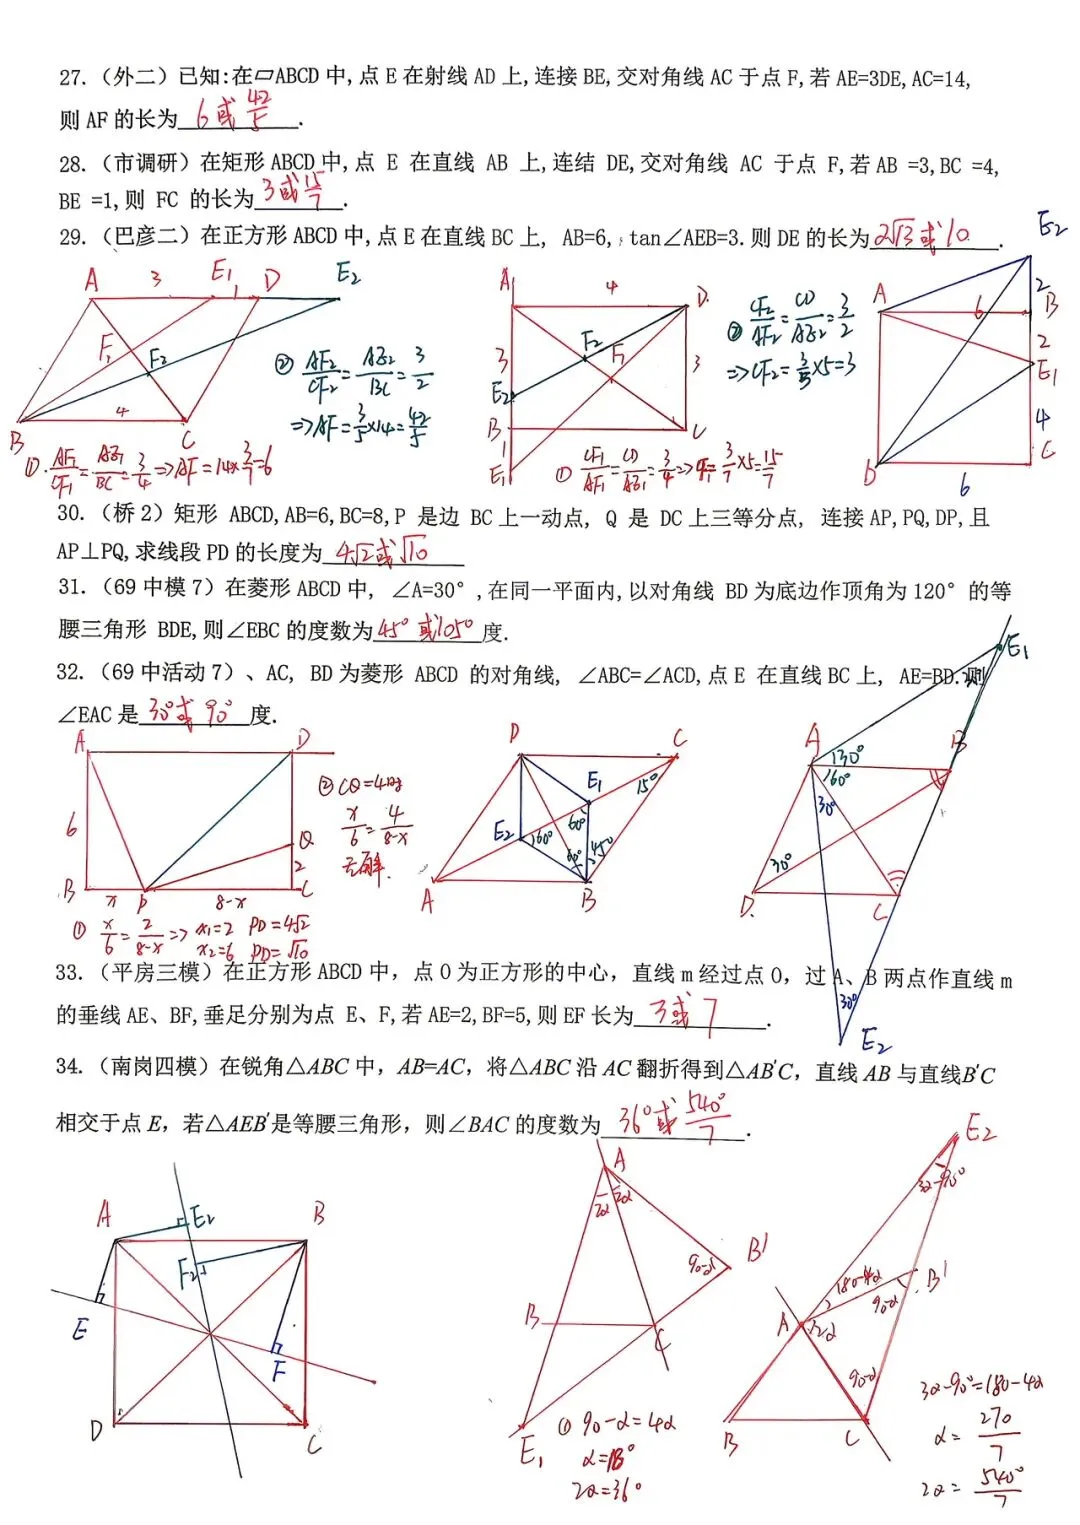 27. (外二) 已知:在▱ABCD 中,点 E 在射线 AD 上,连接 BE,交对角线 AC 于点 F,若 AE=3DE,AC=14,
则 AF 的长为 6或42/5.
28. (市调研) 在矩形 ABCD 中,点 E 在直线 AB 上,连结 DE,交对角线 AC 于点 F,若 AB =3,BC =4,
BE =1,则 FC 的长为 3或15/7.
29. (巴彦二) 在正方形 ABCD 中,点 E 在直线 BC 上, AB=6, tan∠AEB=3.则 DE 的长为 2√13或10.
A 3 E1 1 D E2
F1 F2
B 4 C
② AF2/CF2=AE2/BC=3/2
⇒AF=3/5×14=42/5
① AF1/CF1=AE1/BC=3/4⇒AF=14×3/7=6
A 4 D
3 F2 F1 3
E2
B C
1
E1
② CF2/AF2=CD/AE2=3/2
⇒CF2=3/5×5=3
① CF1/AF1=CD/AE1=3/4⇒CF1=3/7×5=15/7
E2
2
A 6 B
2
E1
4
D 6 C
30. (桥 2) 矩形 ABCD,AB=6,BC=8,P 是边 BC 上一动点, Q 是 DC 上三等分点, 连接 AP,PQ,DP,且
AP⊥PQ,求线段 PD 的长度为 4√2或√10
31. (69 中模 7) 在菱形 ABCD 中, ∠A=30° ,在同一平面内,以对角线 BD 为底边作顶角为 120° 的等
腰三角形 BDE,则∠EBC 的度数为 45°或105° 度.
32. (69 中活动 7)、AC, BD 为菱形 ABCD 的对角线, ∠ABC=∠ACD,点 E 在直线 BC 上, AE=BD.则
∠EAC 是 30°或90° 度.
A D
6
Q
2
B x P 8-x C
② CQ=4时
x/6=4/8-x
无解.
① x/6=2/8-x⇒x1=2 PD=4√2
x2=6 PD=√10
D C
E1 15°
60°
E2 60° 60° 45°
A B
E1
A 30° B
60°
30°
30°
D C
30°
E2
33. (平房三模) 在正方形 ABCD 中, 点 O 为正方形的中心, 直线 m 经过点 O, 过 A、B 两点作直线 m
的垂线 AE、BF,垂足分别为点 E、F,若 AE=2,BF=5,则 EF 长为 3或7.
34. (南岗四模) 在锐角△ABC 中, AB=AC, 将△ABC 沿 AC 翻折得到△AB′C, 直线 AB 与直线B′C
相交于点 E, 若△AEB′是等腰三角形, 则∠BAC 的度数为 36°或540°/7.
A E2 B
F2
E F
D C
A
2α 2α
90-α B'
B C
E1
① 90-α=4α
α=18°
2α=36°
E2
3α-90°
180-4α B'
90-α
A 2α
90-α
B C
3α-90°=180-4α
α=270/7
2α=540°/7